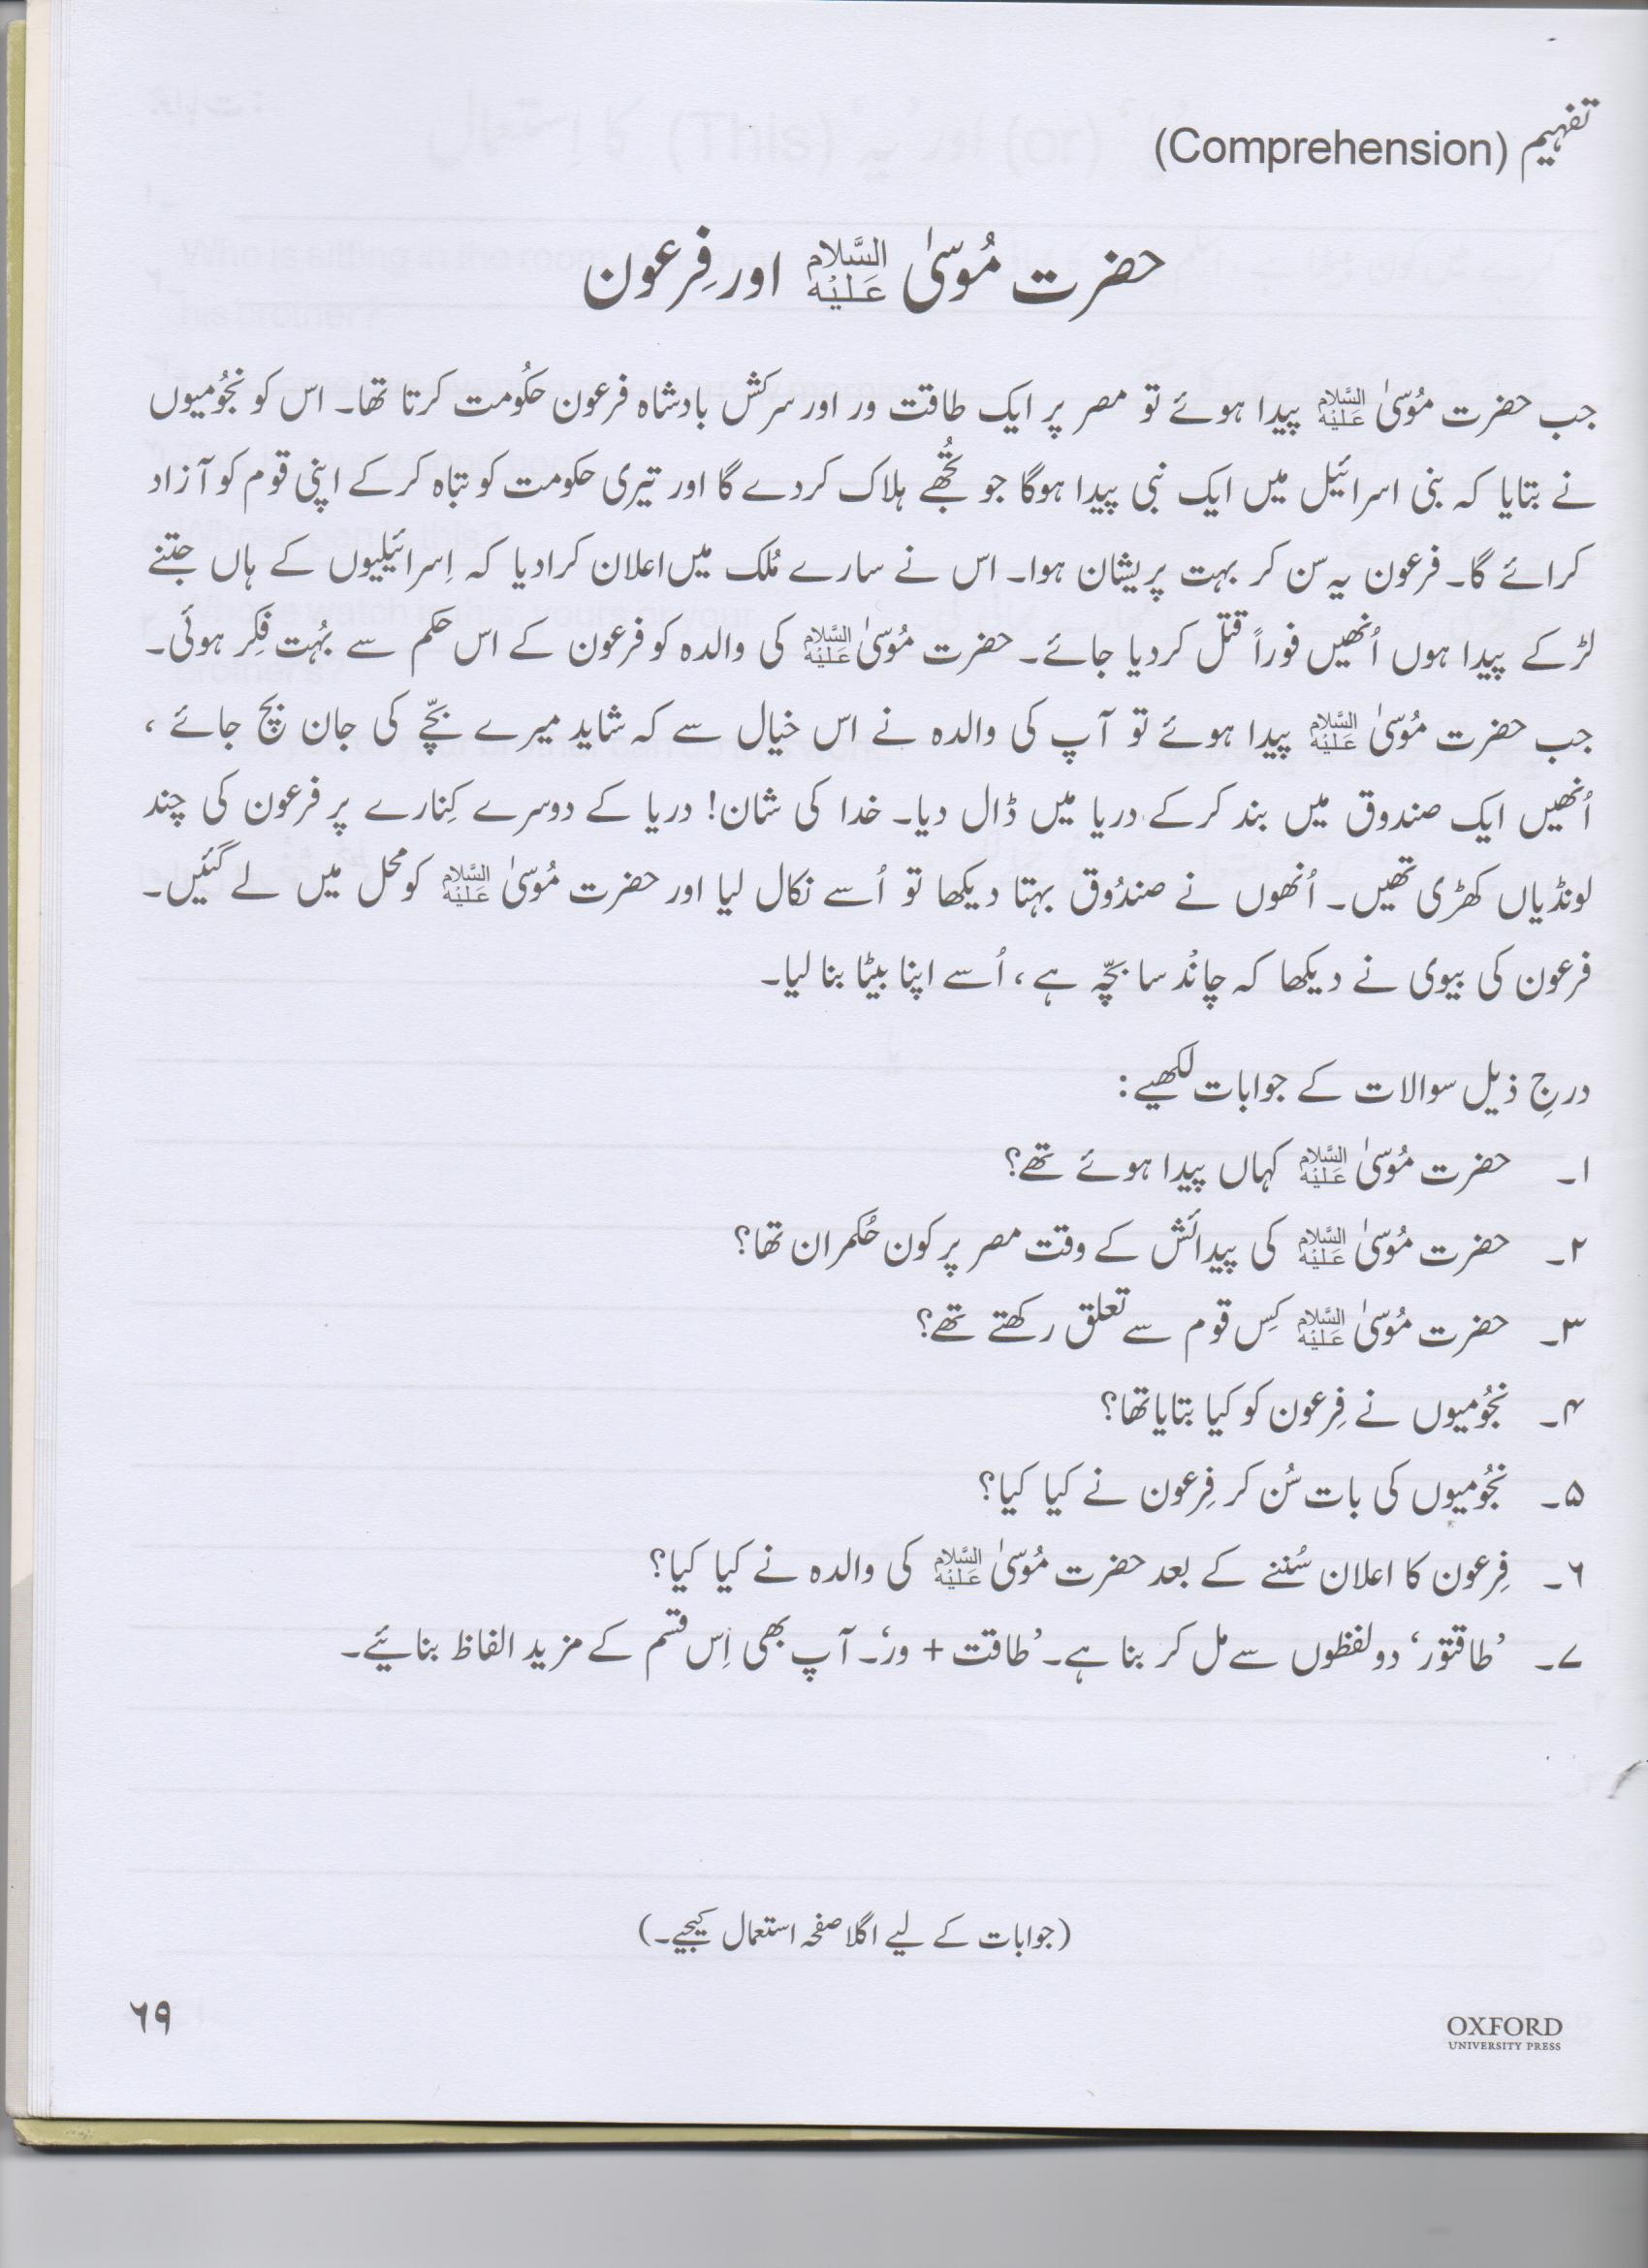 تفہیم (Comprehension)
حضرت مُوسیٰ عَلَیْہِ السَّلَام اور فِرعون
جب حضرت مُوسیٰ عَلَیْہِ السَّلَام پیدا ہوئے تو مصر پر ایک طاقت ور اور سرکش بادشاہ فرعون حکُومت کرتا تھا۔ اس کو نجُومیوں
نے بتایا کہ بنی اسرائیل میں ایک نبی پیدا ہوگا جو تُجھے ہلاک کردے گا اور تیری حکومت کو تباہ کرکے اپنی قوم کو آزاد
کرائے گا۔ فرعون یہ سن کر بہت پریشان ہوا۔ اس نے سارے مُلک میں اعلان کرادیا کہ اِسرائیلیوں کے ہاں جتنے
لڑکے پیدا ہوں اُنھیں فوراً قتل کردیا جائے۔ حضرت مُوسیٰ عَلَیْہِ السَّلَام کی والدہ کو فرعون کے اس حکم سے بہُت فِکر ہوئی۔
جب حضرت مُوسیٰ عَلَیْہِ السَّلَام پیدا ہوئے تو آپ کی والدہ نے اس خیال سے کہ شاید میرے بچّے کی جان بچ جائے ،
اُنھیں ایک صندوق میں بند کرکے دریا میں ڈال دیا۔ خدا کی شان! دریا کے دوسرے کِنارے پر فرعون کی چند
لونڈیاں کھڑی تھیں۔ اُنھوں نے صندُوق بہتا دیکھا تو اُسے نکال لیا اور حضرت مُوسیٰ عَلَیْہِ السَّلَام کو محل میں لے گئیں۔
فرعون کی بیوی نے دیکھا کہ چاند سا بچّہ ہے ، اُسے اپنا بیٹا بنا لیا۔
درجِ ذیل سوالات کے جوابات لکھیے:
۱۔ حضرت مُوسیٰ عَلَیْہِ السَّلَام کہاں پیدا ہوئے تھے؟
۲۔ حضرت مُوسیٰ عَلَیْہِ السَّلَام کی پیدائش کے وقت مصر پر کون حُکمران تھا؟
۳۔ حضرت مُوسیٰ عَلَیْہِ السَّلَام کِس قوم سے تعلق رکھتے تھے؟
۴۔ نجُومیوں نے فِرعون کو کیا بتایا تھا؟
۵۔ نجُومیوں کی بات سُن کر فِرعون نے کیا کیا؟
۶۔ فِرعون کا اعلان سُننے کے بعد حضرت مُوسیٰ عَلَیْہِ السَّلَام کی والدہ نے کیا کیا؟
۷۔ ’طاقتور‘ دو لفظوں سے مل کر بنا ہے۔ ’طاقت + ور‘۔ آپ بھی اِس قسم کے مزید الفاظ بنائیے۔
(جوابات کے لیے اگلا صفحہ استعمال کیجیے۔)
۶۹
OXFORD
UNIVERSITY PRESS